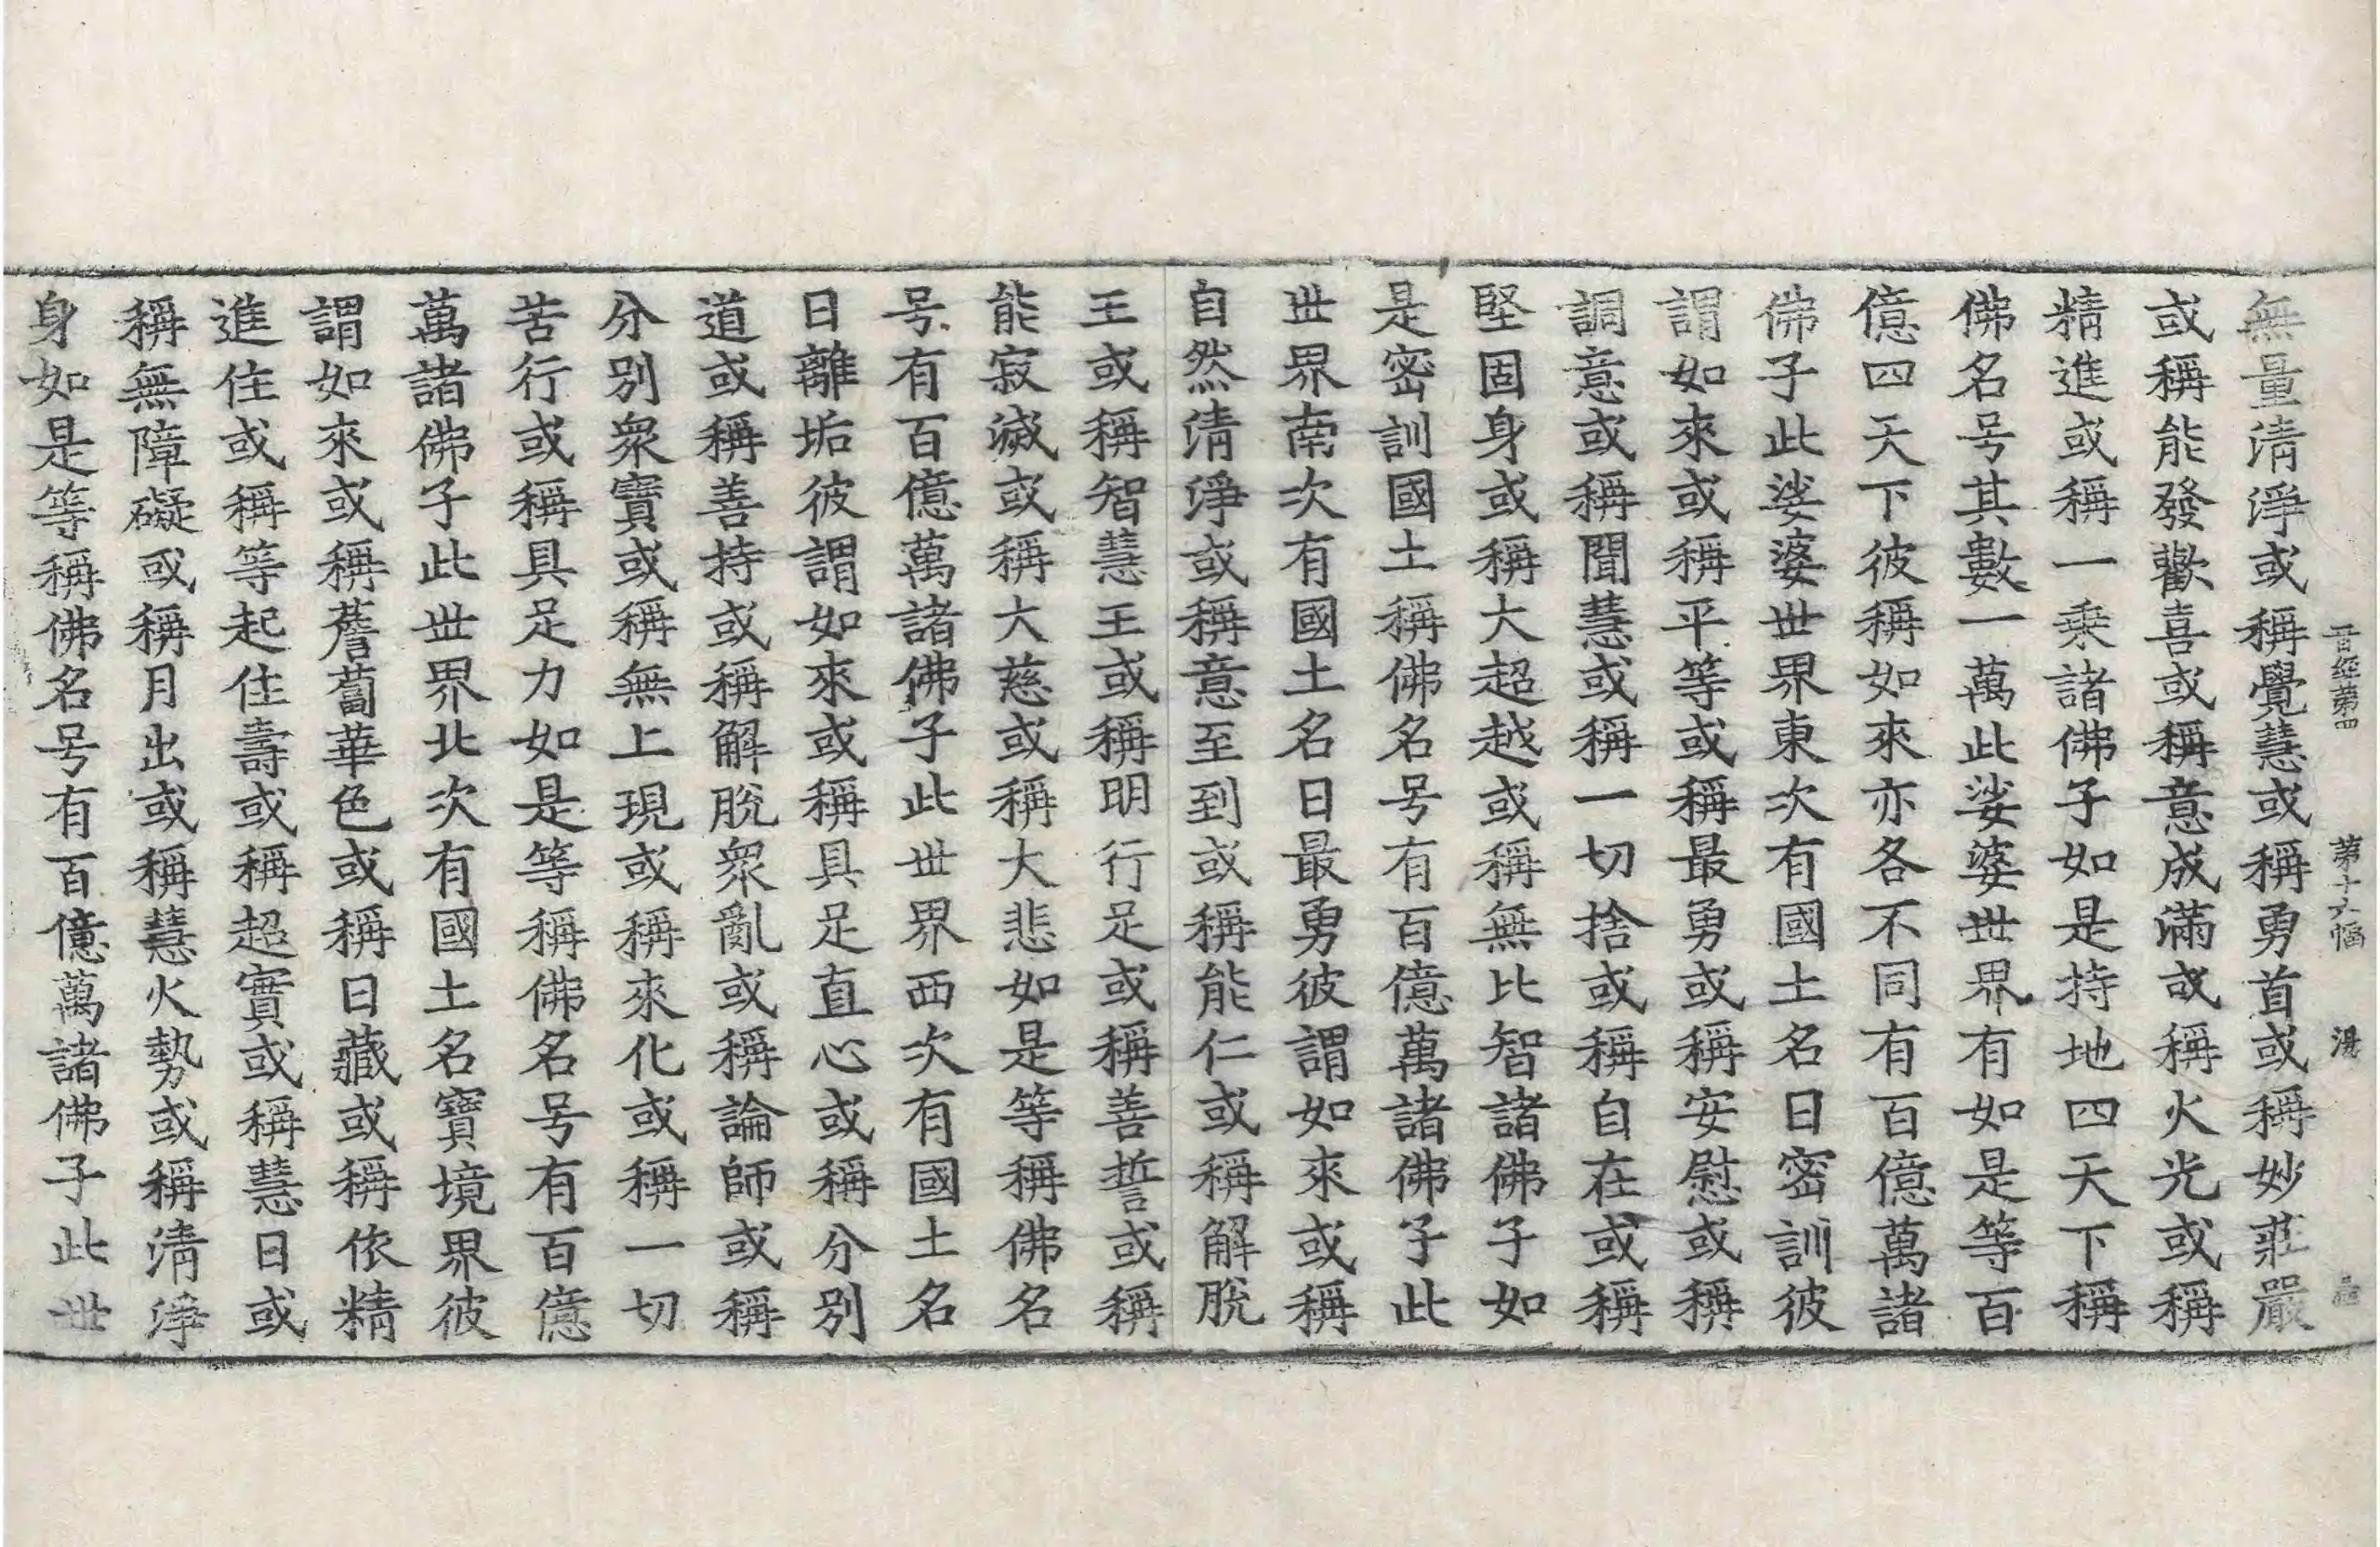 晋經第四 第十六幅
無量清淨或稱覺慧或稱勇首或稱妙莊嚴
或稱能發歡喜或稱意成滿或稱火光或稱
精進或稱一乘諸佛子如是持地四天下稱
佛名号其數一萬此娑婆世界有如是等百
億四天下彼稱如來亦各不同有百億萬諸
佛子此娑婆世界東次有國土名曰密訓彼
謂如來或稱平等或稱最勇或稱安慰或稱
調意或稱聞慧或稱一切捨或稱自在或稱
堅固身或稱大超越或稱無比智諸佛子如
是密訓國土稱佛名号有百億萬諸佛子此
世界南次有國土名曰最勇彼謂如來或稱
自然清淨或稱意至到或稱能仁或稱解脫
王或稱智慧王或稱明行足或稱善誓或稱
能寂滅或稱大慈或稱大悲如是等稱佛名
号有百億萬諸佛子此世界西次有國土名
曰離垢彼謂如來或稱具足直心或稱分別
道或稱善持或稱解脫衆亂或稱論師或稱
分別衆寶或稱無上現或稱來化或稱一切
苦行或稱具足力如是等稱佛名号有百億
萬諸佛子此世界北次有國土名寶境界彼
謂如來或稱薝蔔華色或稱日藏或稱依精
進住或稱等起住壽或稱超實或稱慧日或
稱無障礙或稱月出或稱慧火勢或稱清淨
身如是等稱佛名号有百億萬諸佛子此世